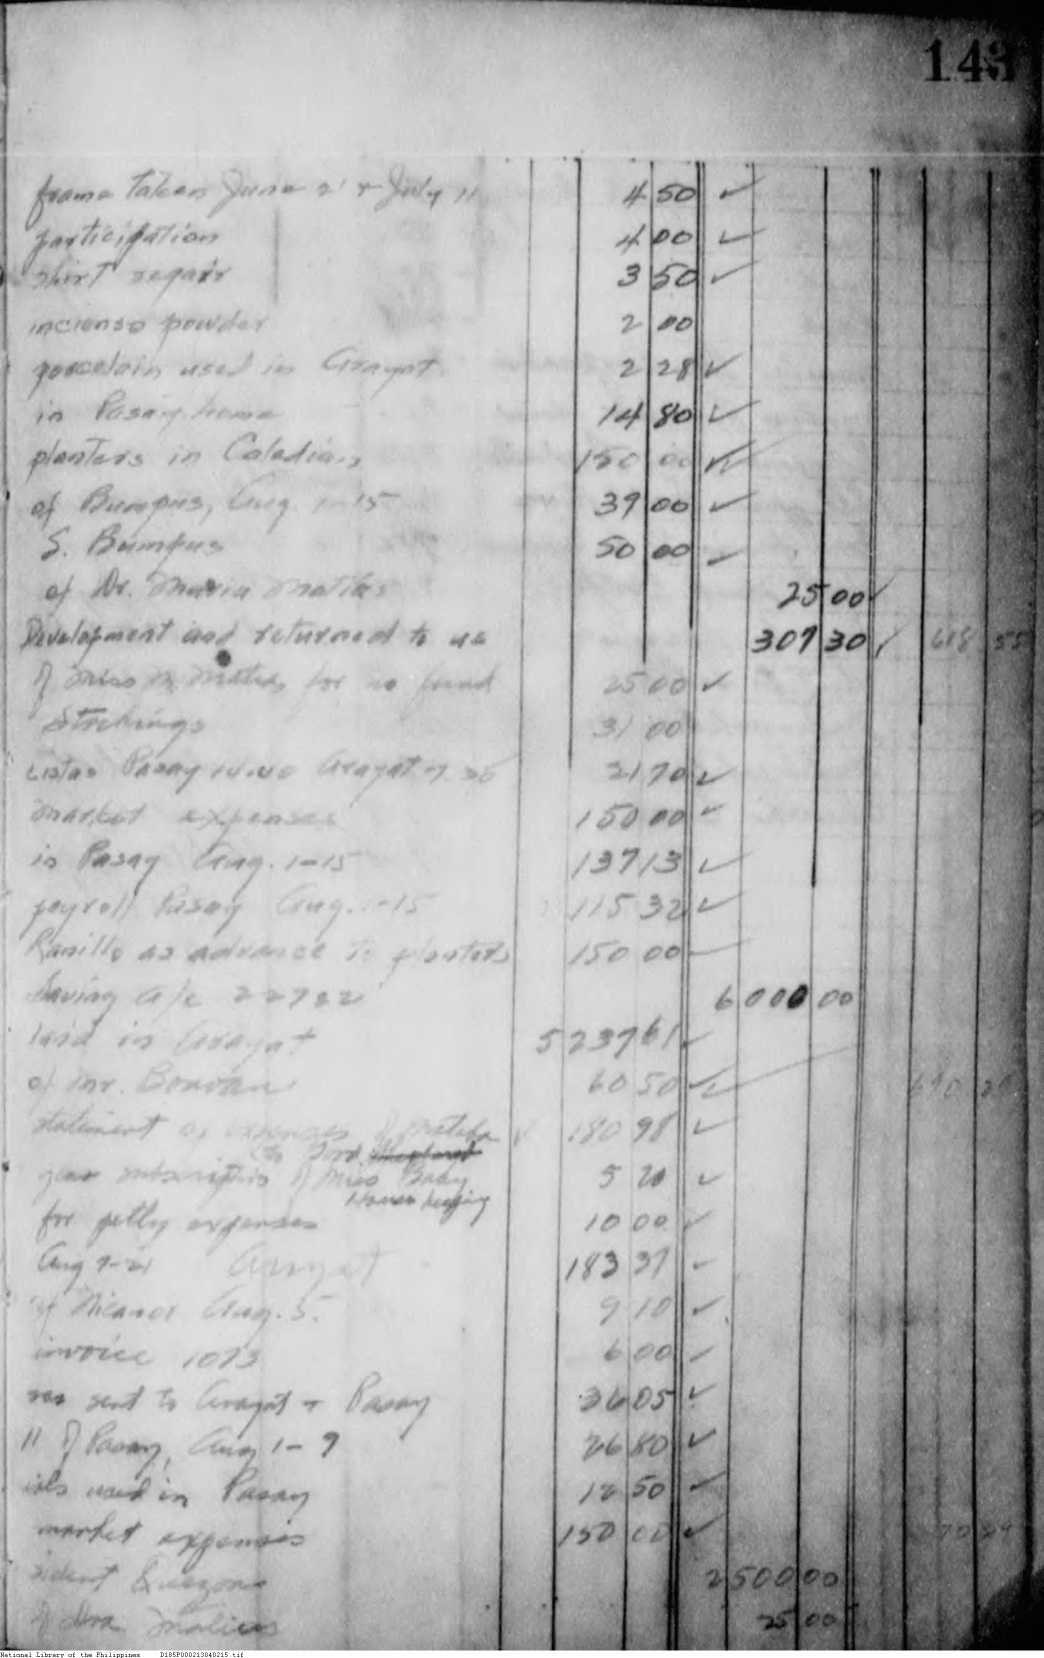 143
frame taken June 21 + July 11 4 50
participation 4 00
shirt repair 3 50
incienso powder 2 00
porcelain used in Arayat 2 28
in Pasay home 14 80
planters in Caledian 150 00
of Bumpus, Aug. 1-15 39 00
S. Bumpus 50 00
of Dr. Maria Matias 25 00
Development and returned to us 307 30 618 55
of Miss M. Matias for no fund 25 00
Stockings 31 00
Pasay 14.40 Arayat 7.30 21 70
market expenses 150 00
in Pasay Aug. 1-15 137 13
payroll Pasay Aug. 1-15 115 32
Ranillo as advance to planters 150 00
Saving a/c 22722 6000 00
land in Arayat 5237 61
of Mr. 60 50
statement as expenses of 180 98
to
year subscription of Miss Baby 5 20
House keeping
for petty expenses 10 00
Aug 7-21 Arayat 183 37
of Nicanor Aug. 5. 9 10
invoice 1073 6 00
sent to Arayat + Pasay 36 05
ll of Pasay, Aug 1-9 26 80
ials used in Pasay 12 50
market expenses 150 00
sident Quezon 2500 00
of Dra 25 00
National Library of the Philippines D185P000213040215.tif